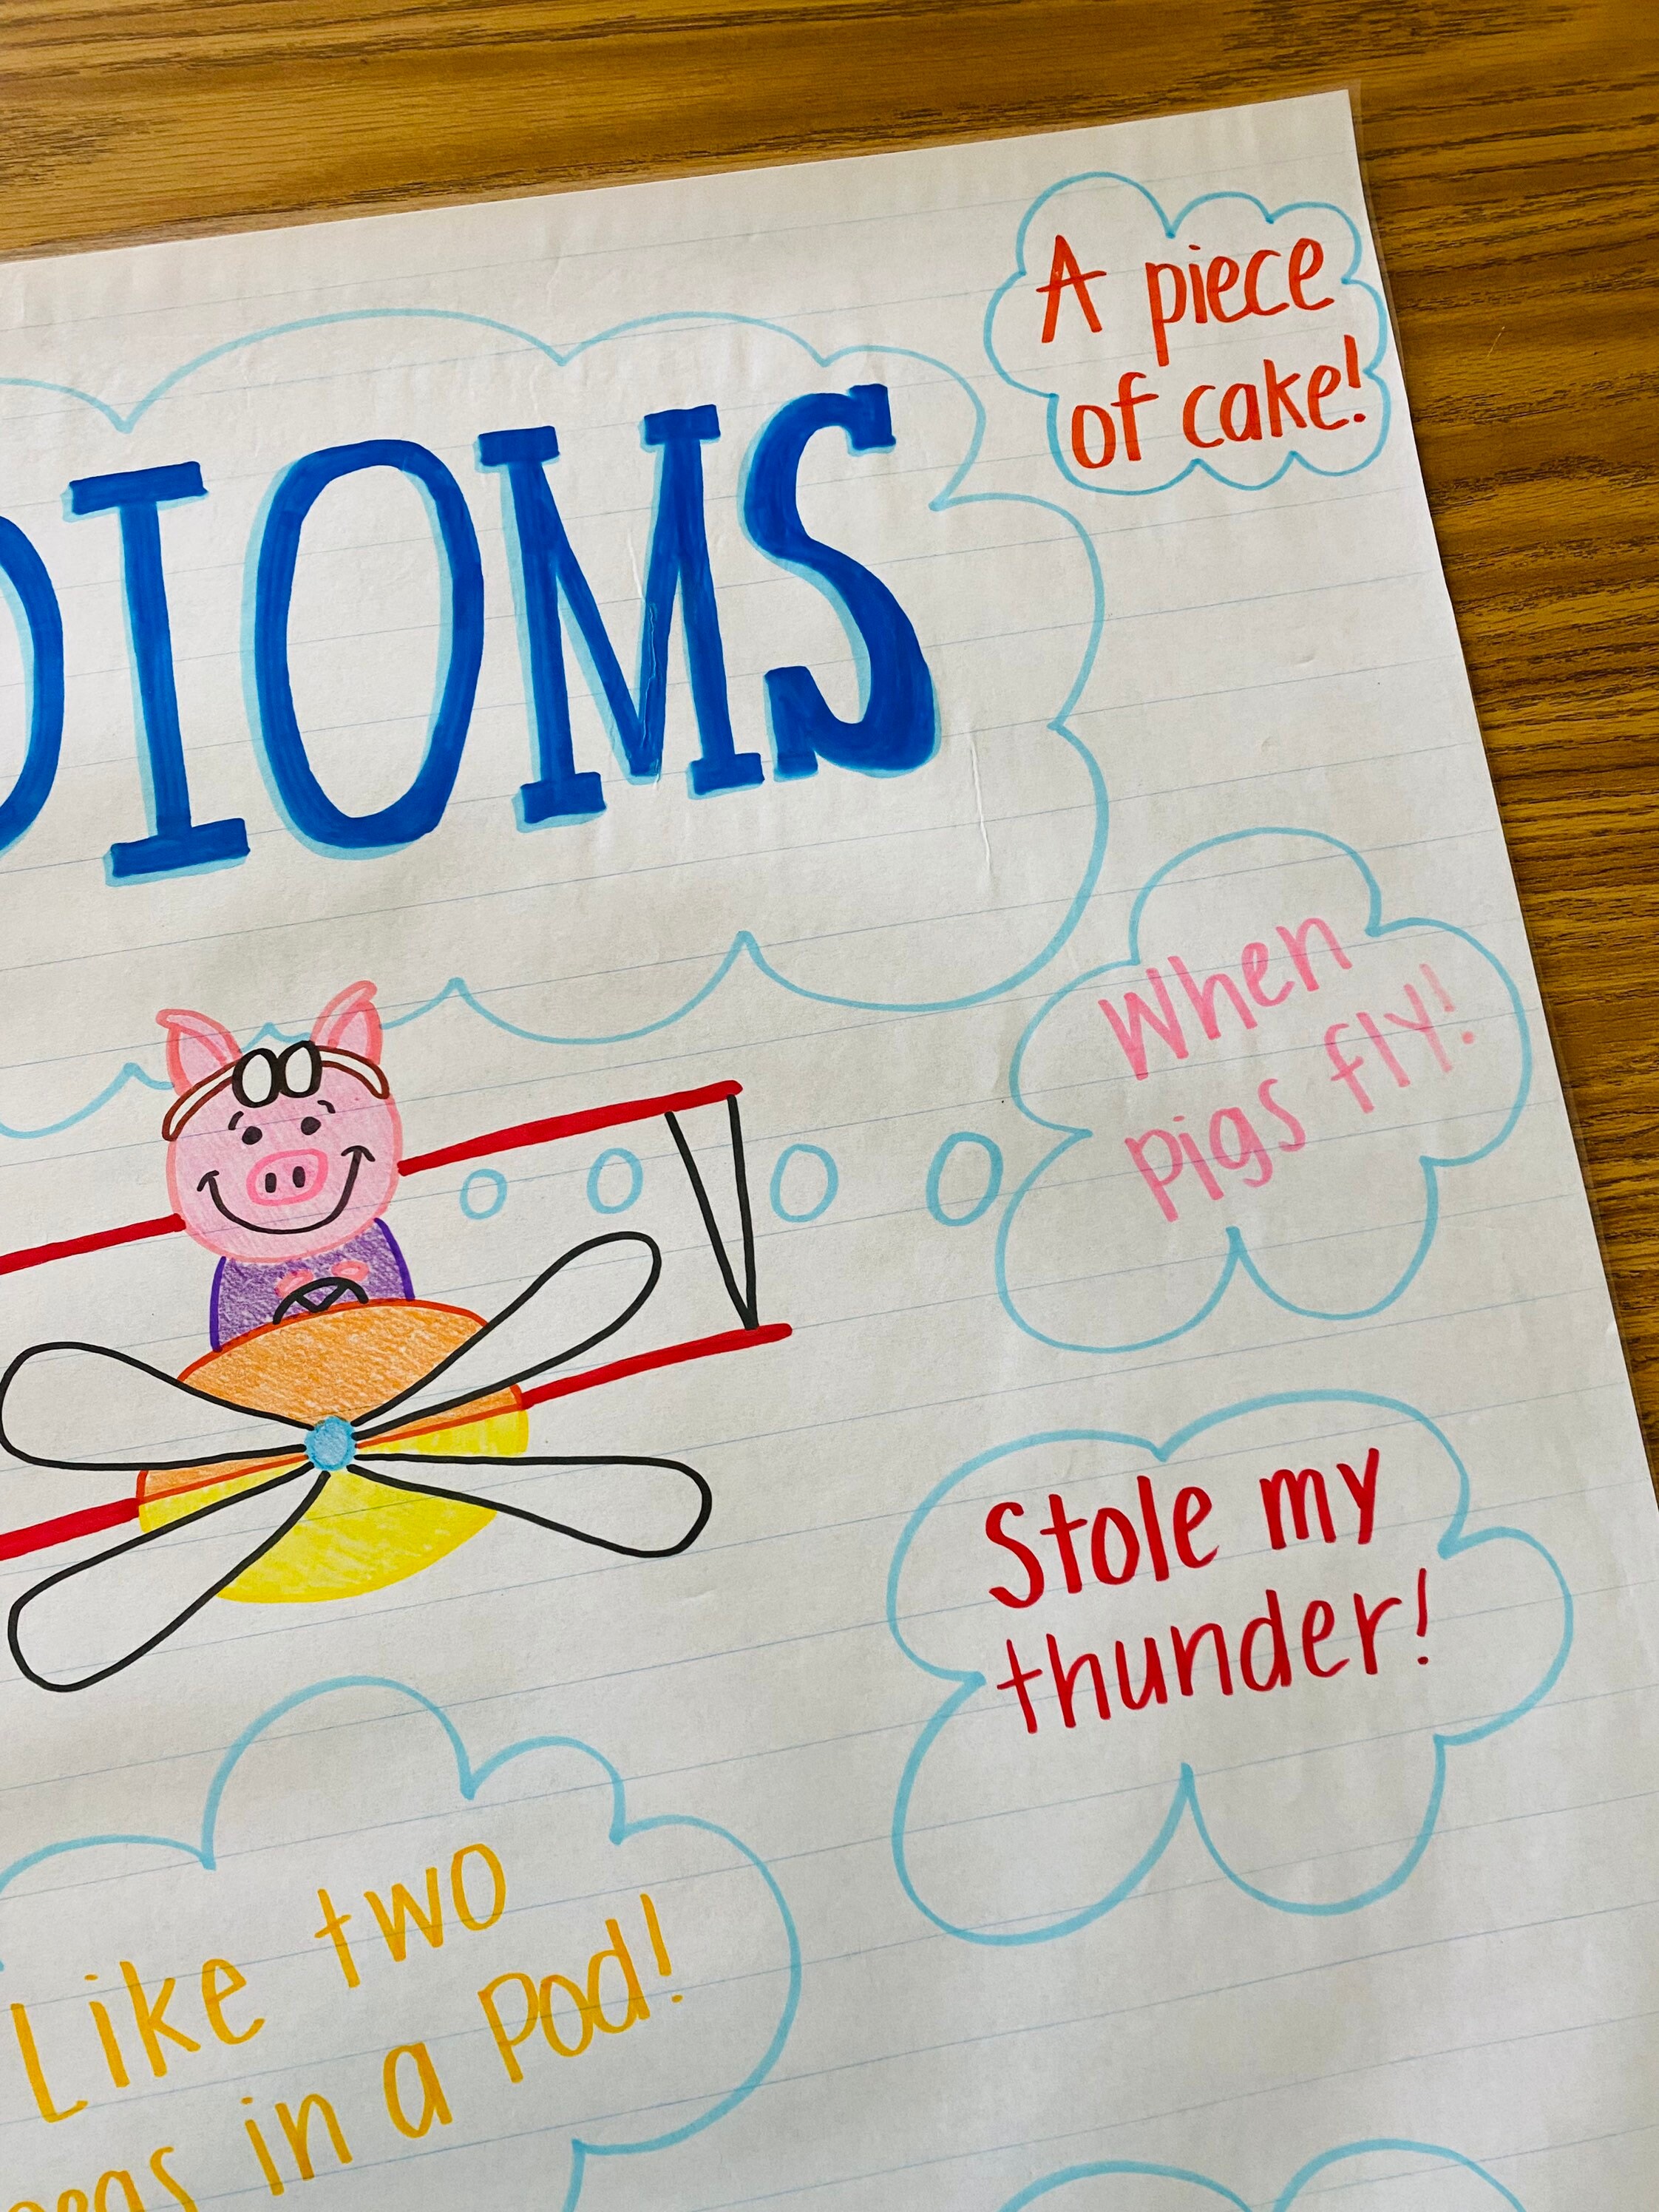 DIOMS
A piece
of cake!
When
pigs fly!
Stole my
thunder!
Like two
peas in a Pod!